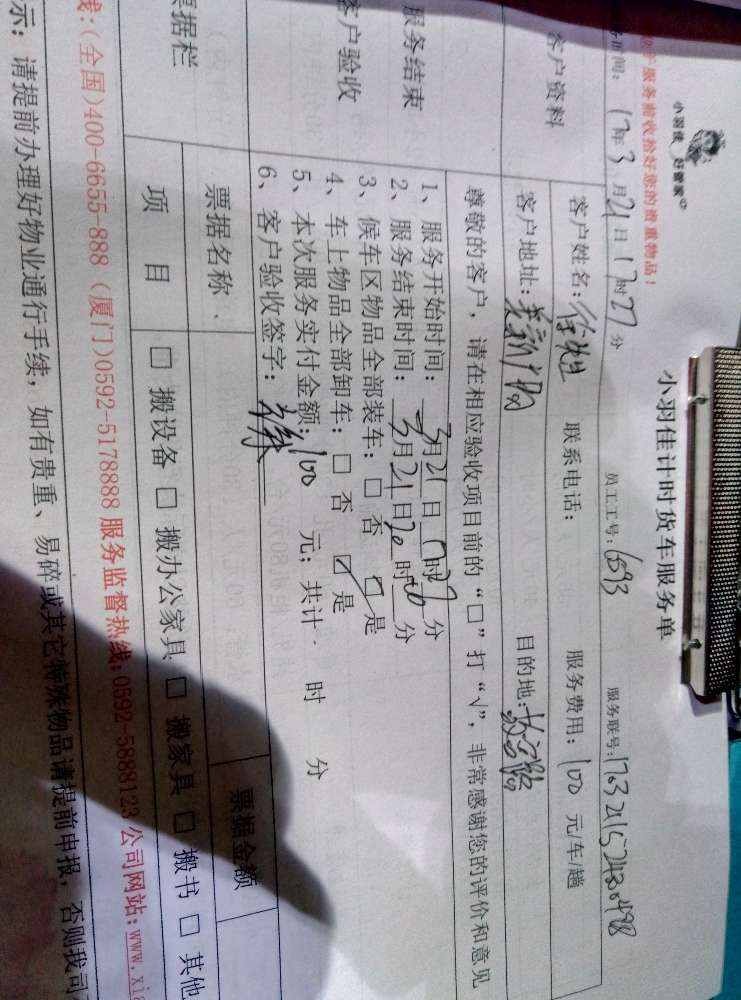 小羽佳 好管家
服务前收拾好您的贵重物品！
小羽佳计时货车服务单
时间：17年3月21日17时27分 员工工号：6093 服务联号：1703211524830498
客户资料
客户姓名：徐先生 联系电话： 服务费用：100元/车/趟
客户地址： 目的地：
尊敬的客户，请在相应验收项目前的“□”打“√”，非常感谢您的评价和意见
服务结束
客户验收
1、服务开始时间：3月21日17时27分
2、服务结束时间：3月21日20时20分
3、候车区物品全部装车：□否 ☑是
4、车上物品全部卸车：□否 ☑是
5、本次服务实付金额：100元；共计 时 分
6、客户验收签字：
票据栏
票据名称 票据金额
项目 □搬设备 □搬办公家具 □搬家具 □搬书 □其他
线：(全国)400-6655-888 (厦门)0592-5178888 服务监督热线：0592-5888123 公司网站：www.xia
示：请提前办理好物业通行手续，如有贵重、易碎或其它特殊物品请提前申报，否则我司